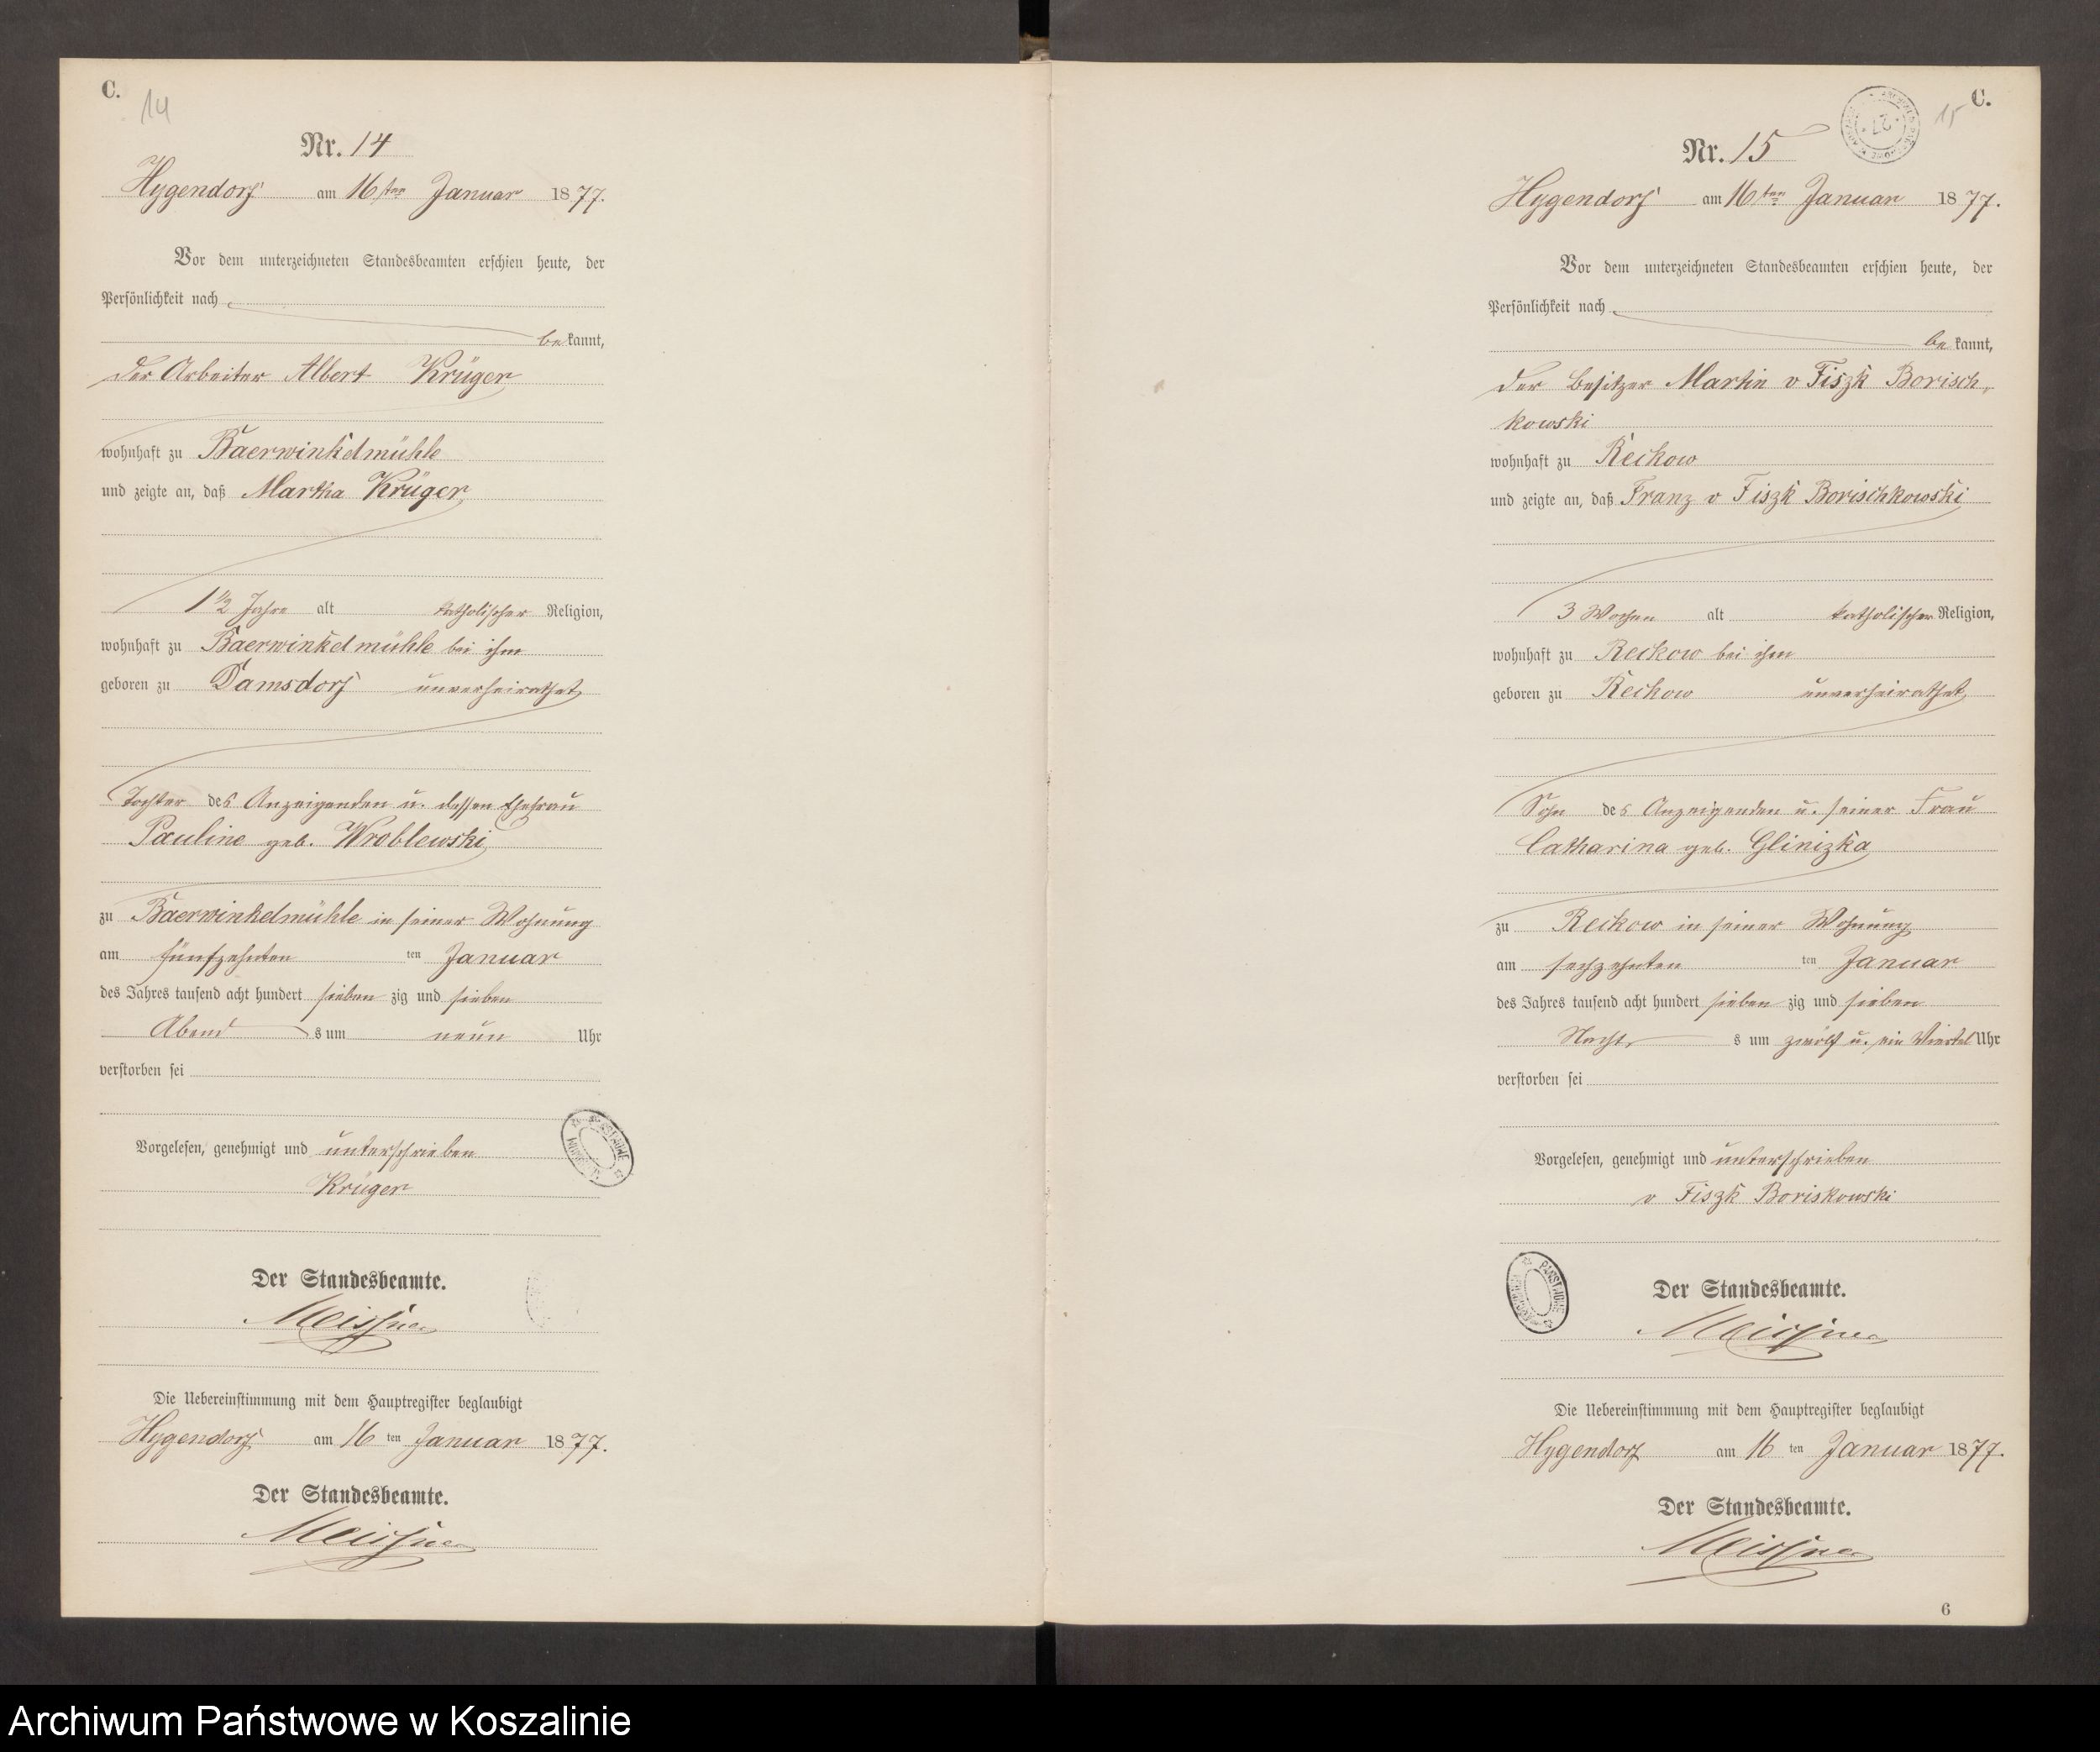 C.
14
Nr. 14
Hygendorf am 16ten Januar 1877.
Vor dem unterzeichneten Standesbeamten erschien heute, der
Persönlichkeit nach
bekannt,
der Arbeiter Albert Krüger
wohnhaft zu Baerwinkelmühle
und zeigte an, daß Martha Krüger
1 1/2 Jahre alt katholischer Religion,
wohnhaft zu Baerwinkelmühle bei ihm
geboren zu Damsdorf unverheirathet
Tochter des Anzeigenden u. dessen Ehefrau
Pauline geb. Wroblewski
zu Baerwinkelmühle in seiner Wohnung
am fünfzehnten ten Januar
des Jahres tausend acht hundert sieben zig und sieben
Abend s um neun Uhr
verstorben sei
Vorgelesen, genehmigt und unterschrieben
Krüger
Der Standesbeamte.
Meissner
Die Uebereinstimmung mit dem Hauptregister beglaubigt
Hygendorf am 16 ten Januar 1877.
Der Standesbeamte.
Meissner
C.
15
27
Nr. 15
Hygendorf am 16ten Januar 1877.
Vor dem unterzeichneten Standesbeamten erschien heute, der
Persönlichkeit nach
bekannt,
der Besitzer Martin v Fiszk Borisch-
kowski
wohnhaft zu Reckow
und zeigte an, daß Franz v Fiszk Borischkowski
3 Wochen alt katholischer Religion,
wohnhaft zu Reckow bei ihm
geboren zu Reckow unverheirathet
Sohn des Anzeigenden u. seiner Frau
Catharina geb. Glinizka
zu Reckow in seiner Wohnung
am sechzehnten ten Januar
des Jahres tausend acht hundert sieben zig und sieben
Nacht s um zwölf u. ein Viertel Uhr
verstorben sei
Vorgelesen, genehmigt und unterschrieben
v Fiszk Boriskowski
Der Standesbeamte.
Meissner
Die Uebereinstimmung mit dem Hauptregister beglaubigt
Hygendorf am 16 ten Januar 1877.
Der Standesbeamte.
Meissner
6
Archiwum Państwowe w Koszalinie